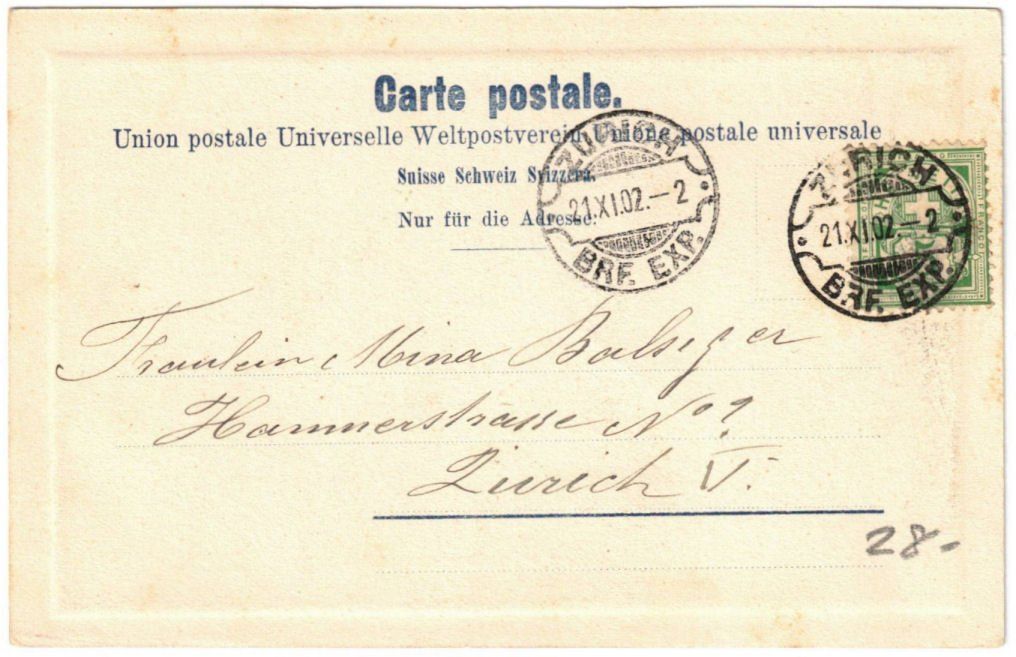 Carte postale.
Union postale Universelle Weltpostverein Unione postale universale
Suisse Schweiz Svizzera.
Nur für die Adresse.
ZÜRICH
21.XI.02.–2
BRF. EXP.
ZÜRICH
21.XI.02–2
BRF. EXP.
Fraulein Mina Balsiger
Hammerstrasse No ?
Zurich V.
28.-